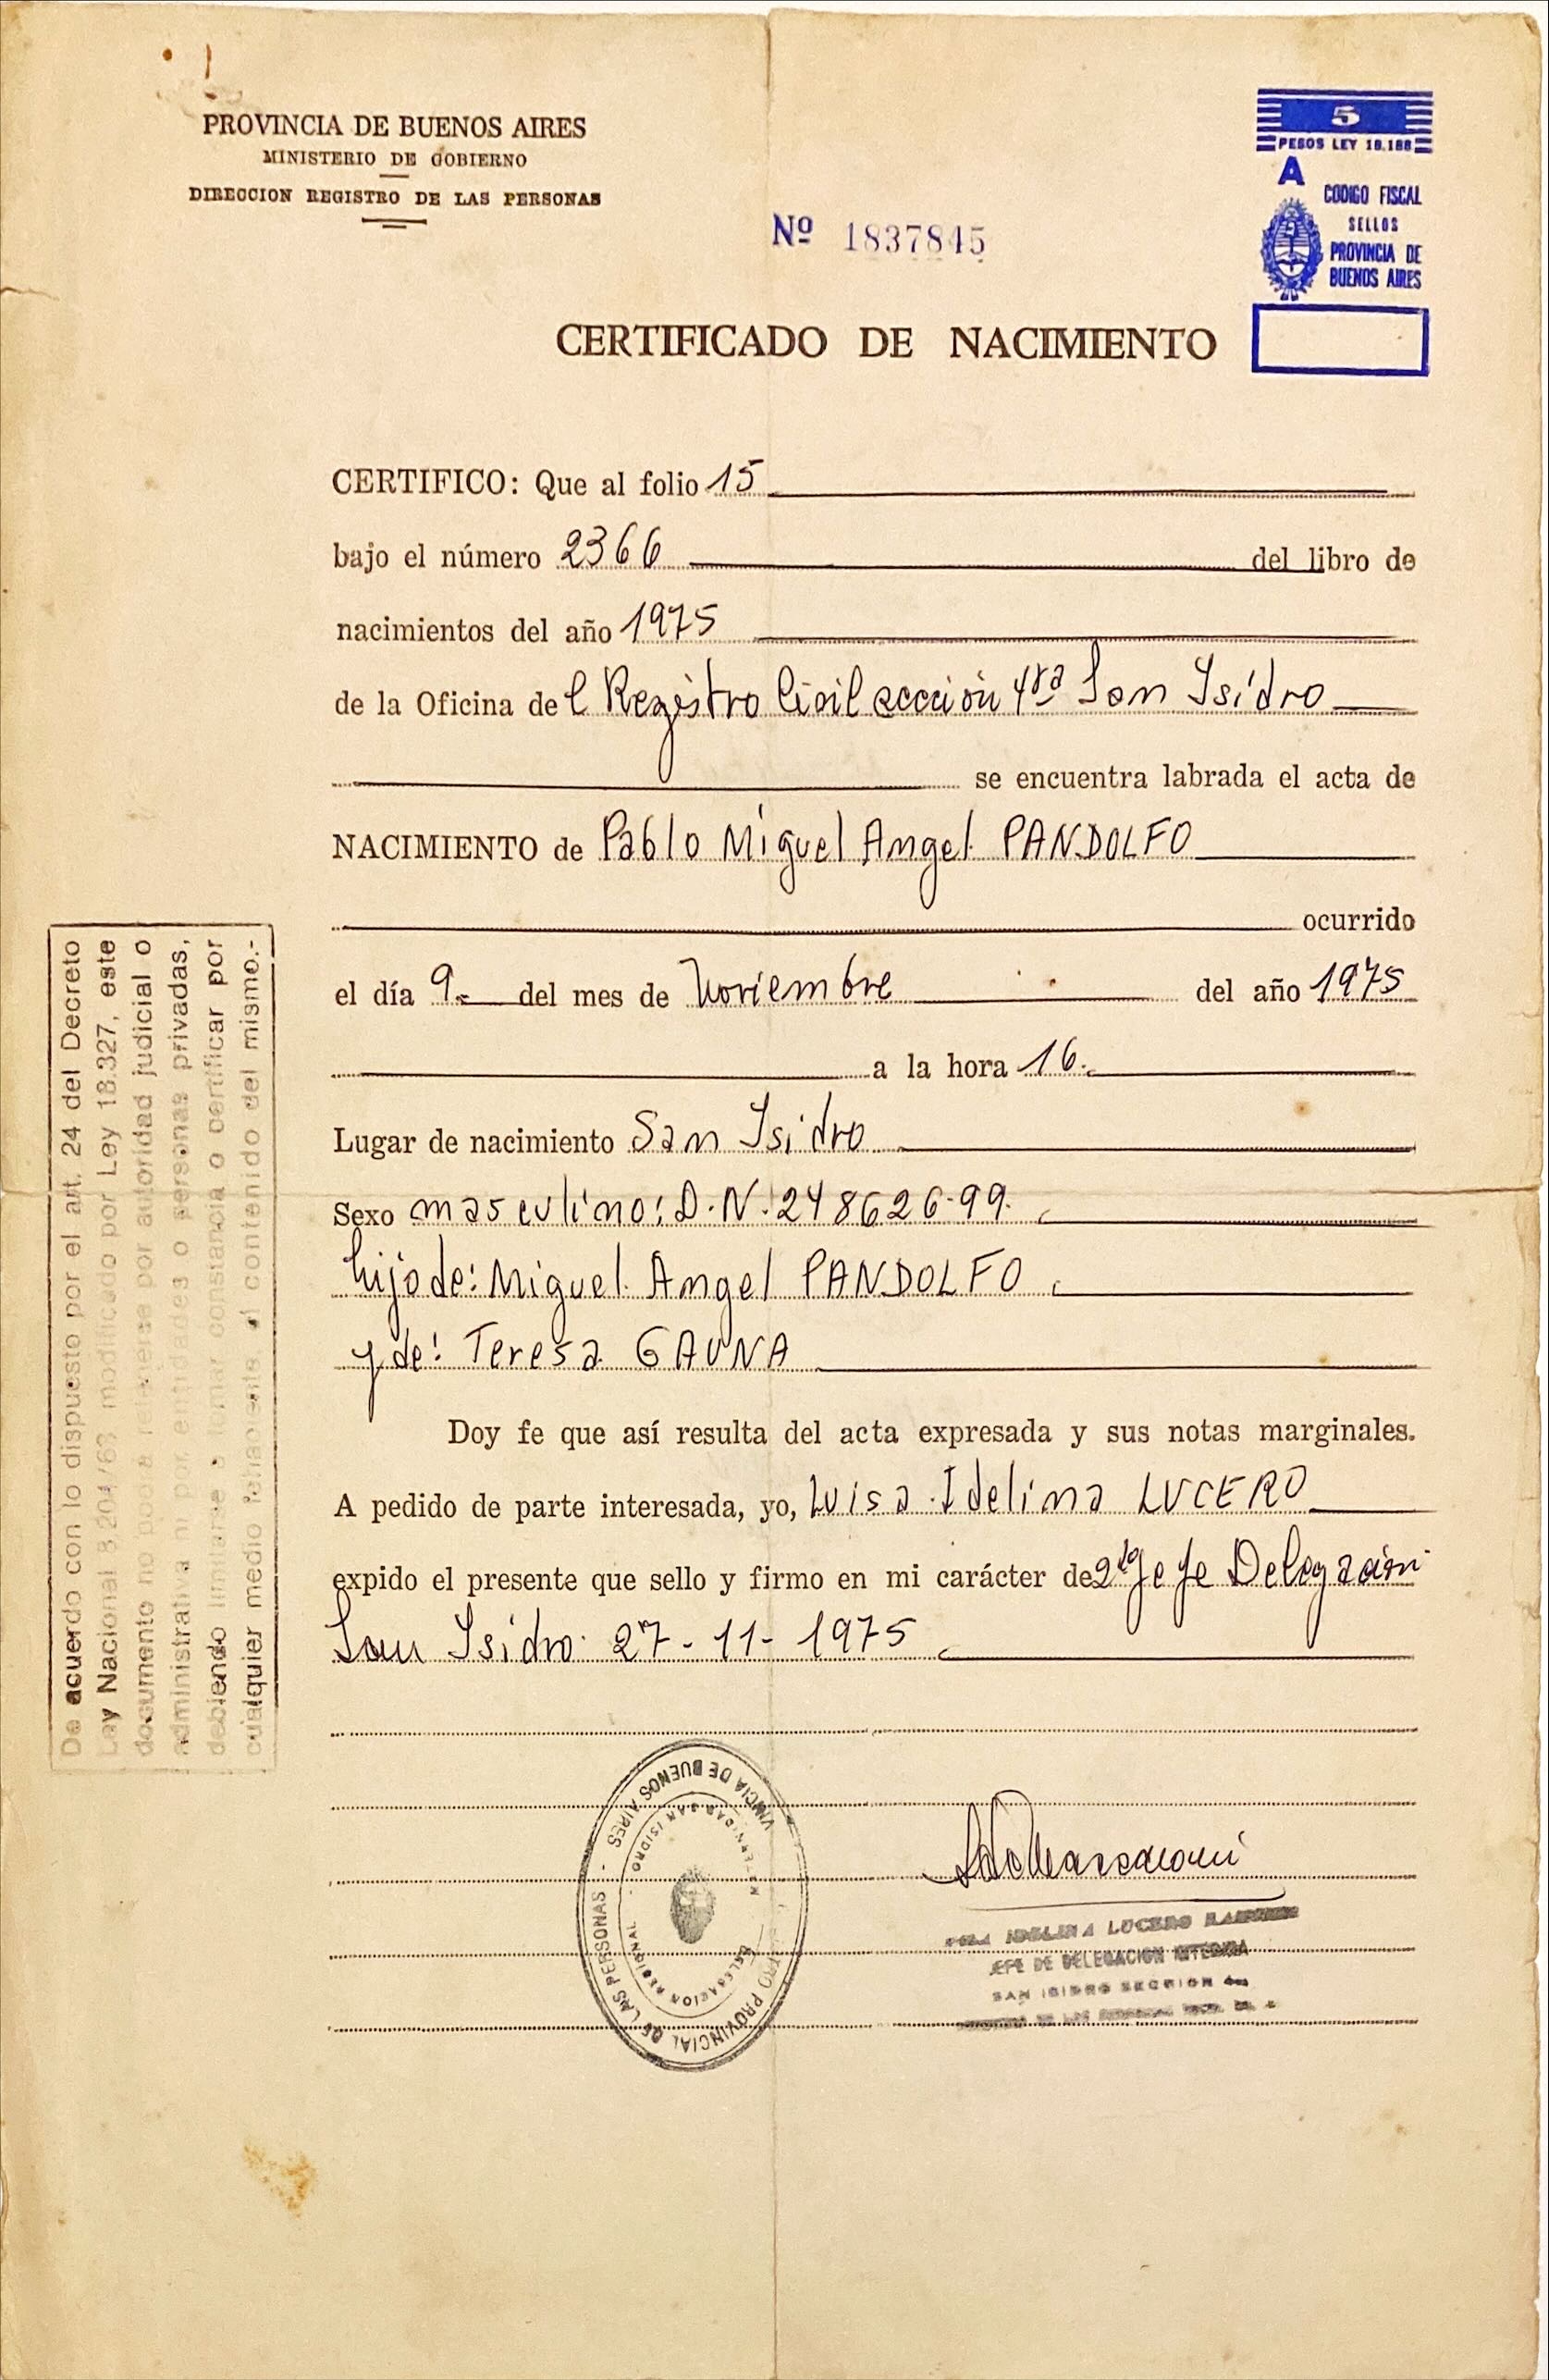 PROVINCIA DE BUENOS AIRES
MINISTERIO DE GOBIERNO
DIRECCION REGISTRO DE LAS PERSONAS
5
PESOS LEY 18.188
A
CODIGO FISCAL
SELLOS
PROVINCIA DE
BUENOS AIRES
Nº 1837845
CERTIFICADO DE NACIMIENTO
CERTIFICO: Que al folio 15
bajo el número 2366 del libro de
nacimientos del año 1975
de la Oficina del Registro Civil sección 4ta San Isidro
se encuentra labrada el acta de
NACIMIENTO de Pablo Miguel Angel PANDOLFO
ocurrido
el día 9.- del mes de Noviembre del año 1975
a la hora 16.
Lugar de nacimiento San Isidro
Sexo masculino: D.N. 248626-99.
hijo de: Miguel Angel PANDOLFO
y de: Teresa GAUNA
Doy fe que así resulta del acta expresada y sus notas marginales.
A pedido de parte interesada, yo, Luisa Idelina LUCERO
expido el presente que sello y firmo en mi carácter de 2do Jefe Delegación
San Isidro 27-11-1975
De acuerdo con lo dispuesto por el art. 24 del Decreto
Ley Nacional 8.204/63 modificado por Ley 18.327, este
documento no podrá retenerse por autoridad judicial o
administrativa ni por entidades o personas privadas,
debiendo limitarse a tomar constancia o certificar por
cualquier medio fehaciente el contenido del mismo.-
PROVINCIAL DE LAS PERSONAS - VINCIA DE BUENOS AIRES
DELEGACION REGIONAL - SAN ISIDRO
IDELINA LUCERO
JEFE DE DELEGACION INTERINA
SAN ISIDRO SECCION